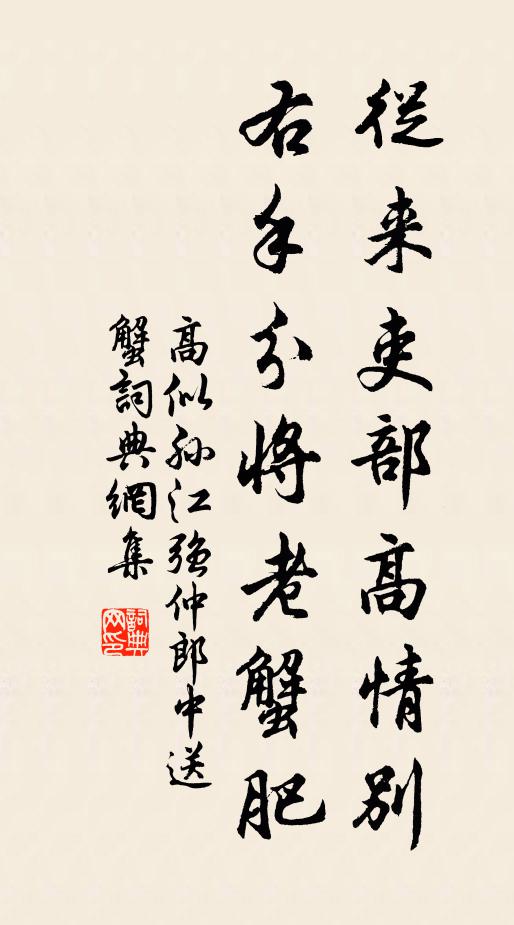 從来吏部高情別
右手分將老蟹肥
高似孙江强仲郎中送
蟹詞典網集
詞典网印